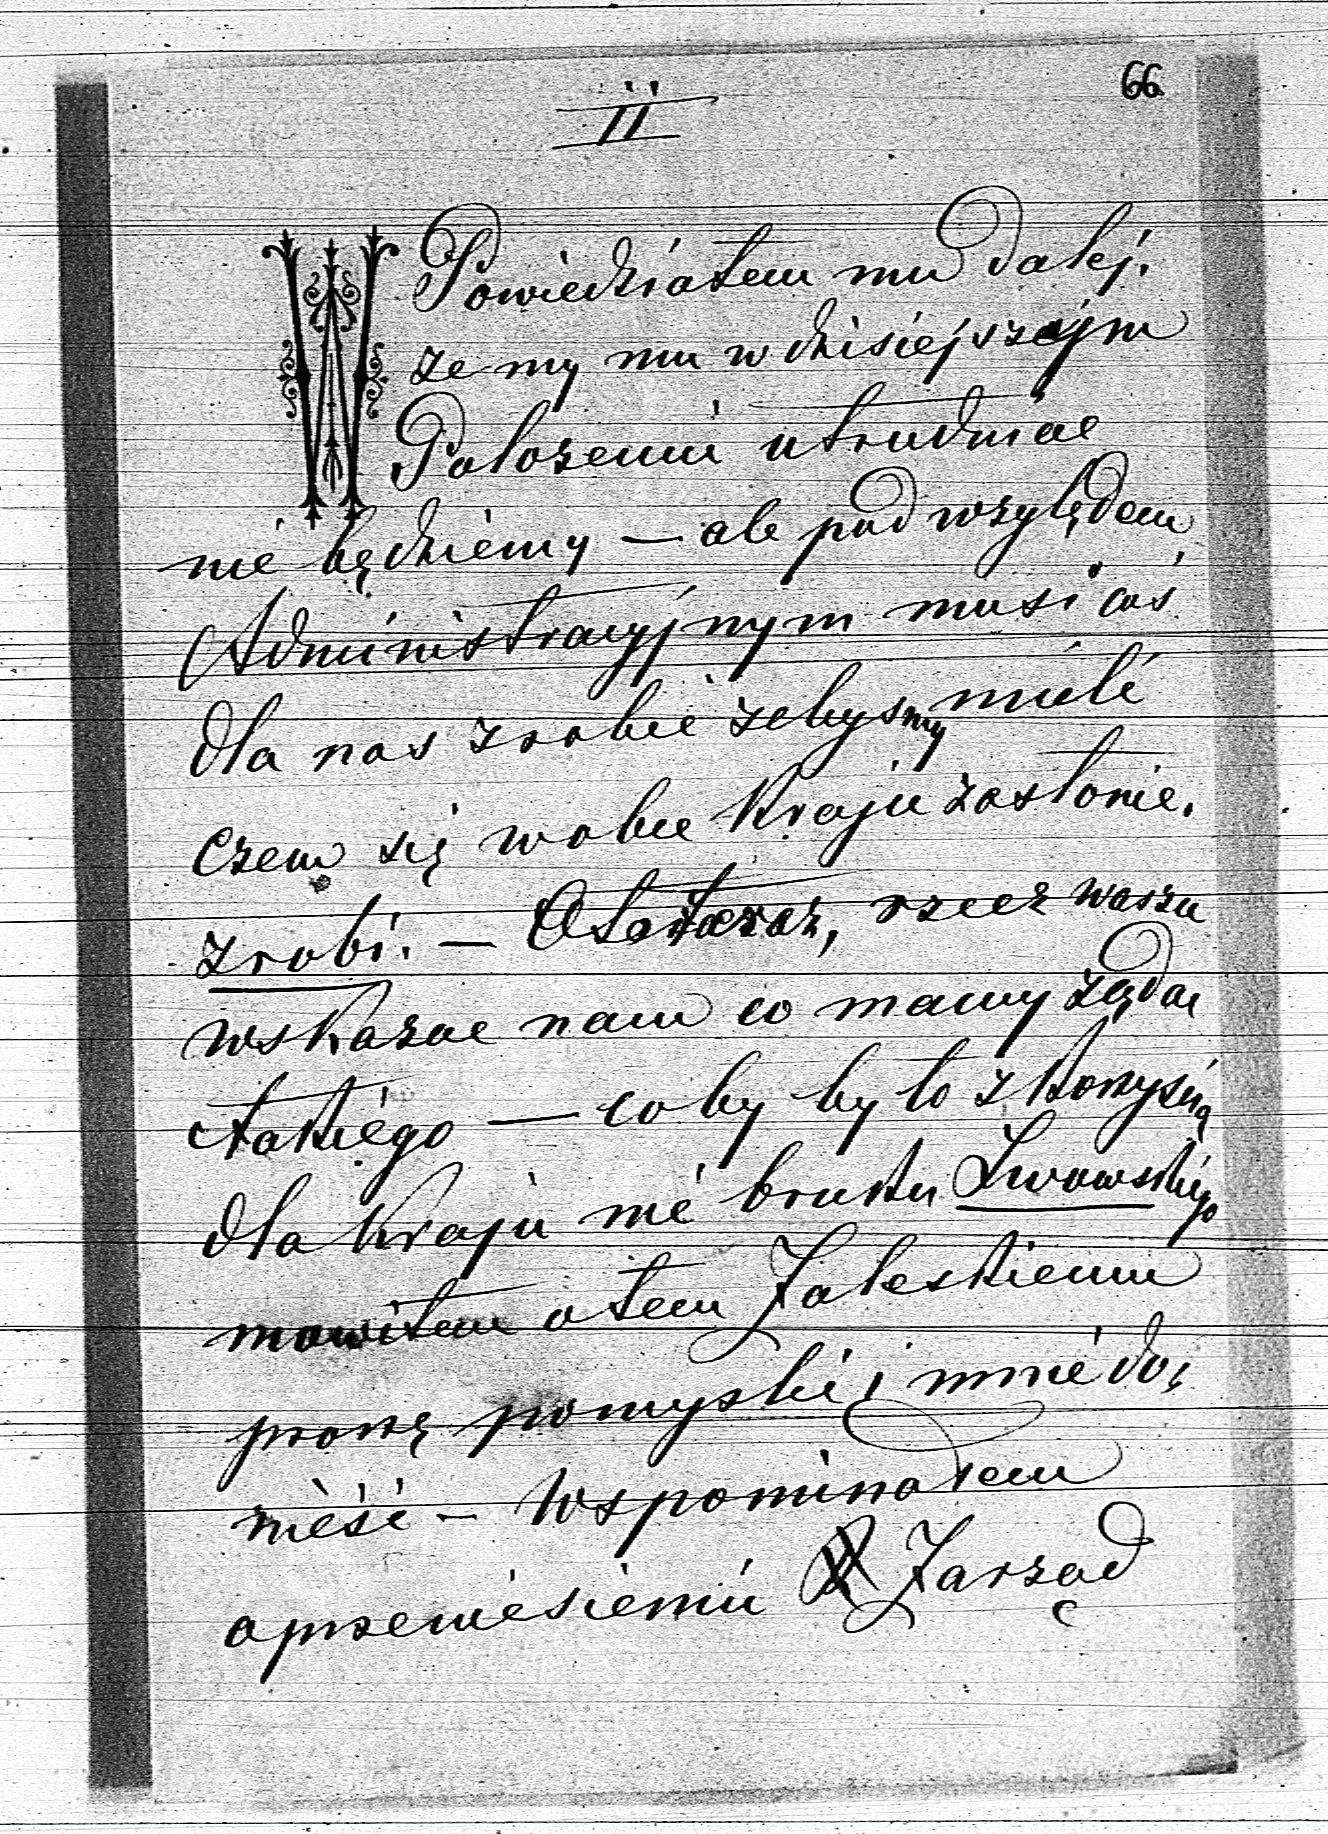 66
II
W
Powiedziałem mu dalej.
ze my mu w dzisiejszejm
Położeniu utrudniac
nié będziemy — ale pod względem
Administracyjnym musi coś
dla nas zrobić zebyśmy mieli
czem się wobec Kraju zasłonic.
zrobi. — teraz, rzecz wasza
wskazac nam co mamy ządac
takiégo — coby było z Korzyścią
dla Kraju nié bruku Lwowskiégo
mowiłem o tem Zaleskiemu
proszę pomyslić i mnié do,
nieść — Wspominałem
o przeniesieniu Zarząd